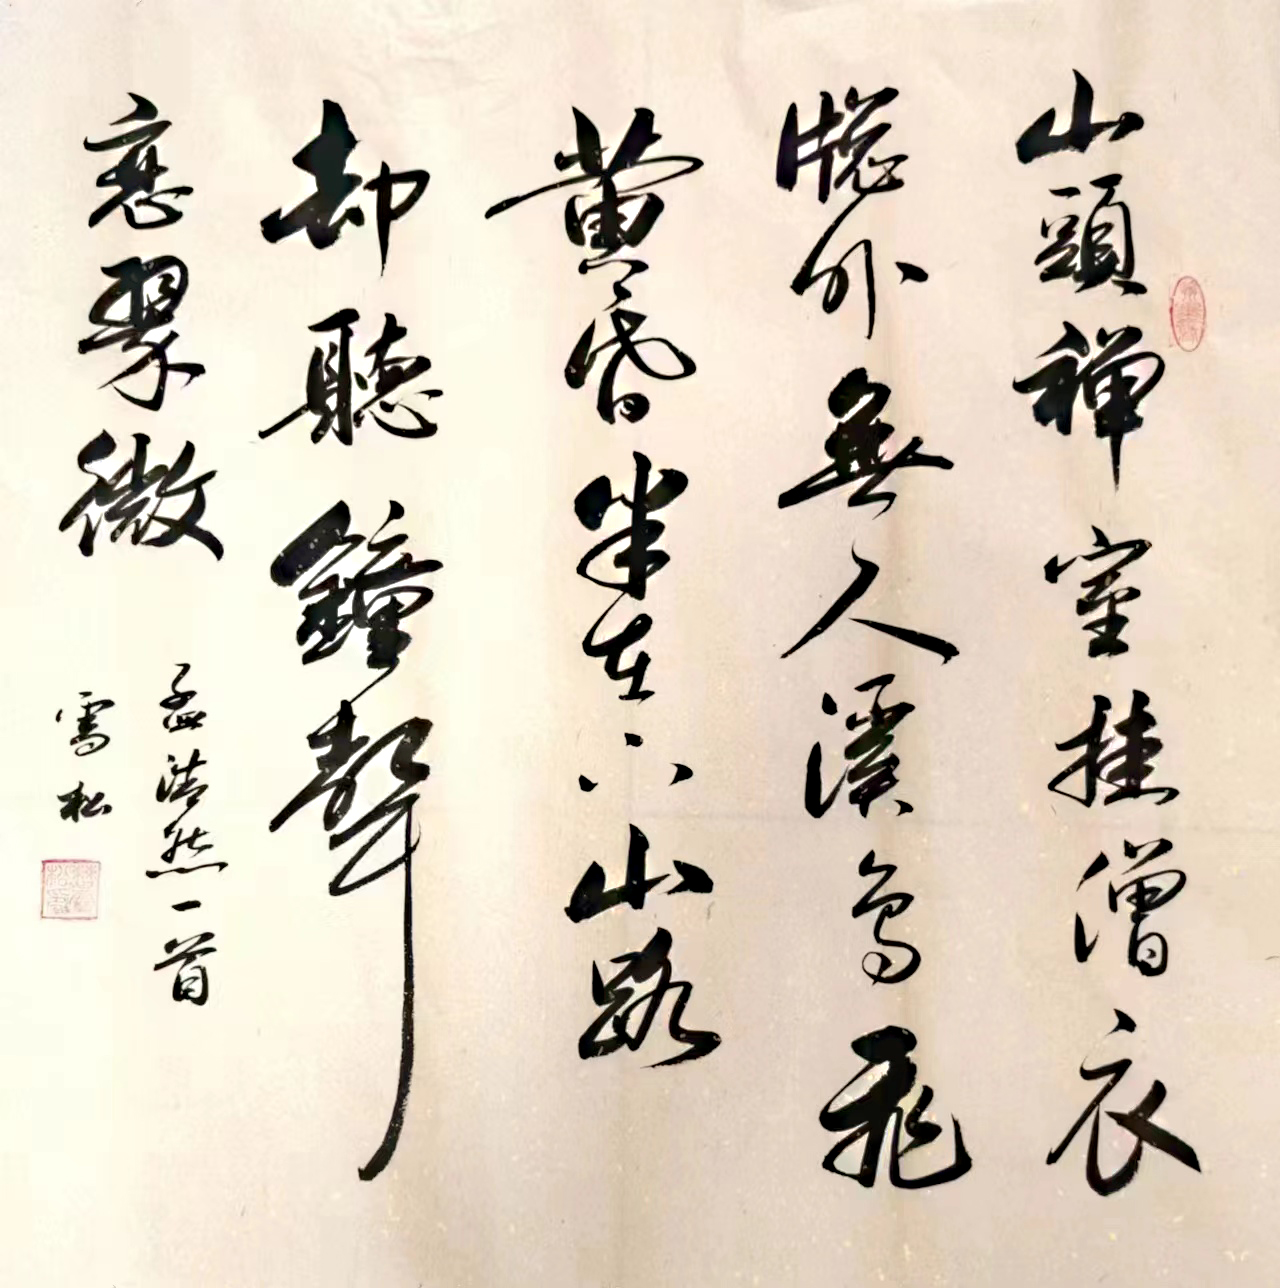 山頭禪室挂僧衣
窓外無人溪鳥飛
黄昏半在下山路
却聽鐘聲
戀翠微
孟浩然一首
雪松